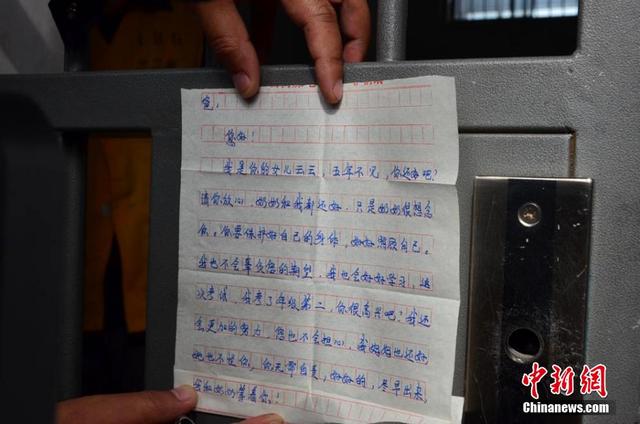 爸:
您好!
我是你的女儿云云,五年不见,你还好吧?
请你放心,奶奶和我都还好,只是奶奶很想念
你。你要保护好自己的身体,好好照顾自己。
我也不会辜负您的期望,我也会好好学习,这
次考试,我考了年级第二,你很高兴吧?我还
会更加的努力,您也不会担心,我妈妈也还好
她也不怪你,你无那自责,好好的,尽早出来,
我和奶奶等着你!
中新网
Chinanews.com